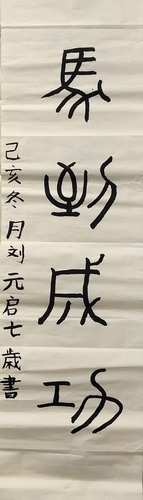 馬到成功
己亥冬月刘元启七歲書